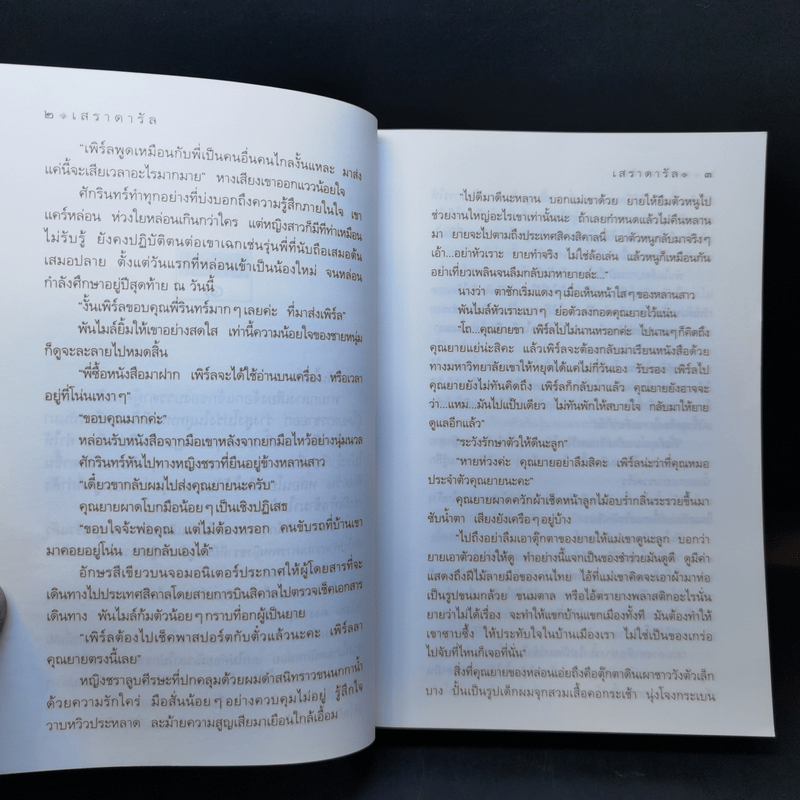 ๒ ๑ เสราดารัล
"เพิร์ลพูดเหมือนกับพี่เป็นคนอื่นคนไกลงั้นแหละ มาส่ง
แค่นี้จะเสียเวลาอะไรมากมาย" หางเสียงเขาออกแววน้อยใจ
ศักรินทร์ทำทุกอย่างที่บ่งบอกถึงความรู้สึกภายในใจ เขา
แคร์หล่อน ห่วงใยหล่อนเกินกว่าใคร แต่หญิงสาวก็มีทีท่าเหมือน
ไม่รับรู้ ยังคงปฏิบัติตนต่อเขาเฉกเช่นรุ่นพี่ที่นับถือเสมอต้น
เสมอปลาย ตั้งแต่วันแรกที่หล่อนเข้าเป็นน้องใหม่ จนหล่อน
กำลังศึกษาอยู่ปีสุดท้าย ณ วันนี้
"งั้นเพิร์ลขอบคุณพี่รินทร์มากๆเลยค่ะ ที่มาส่งเพิร์ล"
พันไมล์ยิ้มให้เขาอย่างสดใส เท่านี้ความน้อยใจของชายหนุ่ม
ก็ดูจะละลายไปหมดสิ้น
"พี่ซื้อหนังสือมาฝาก เพิร์ลจะได้ใช้อ่านบนเครื่อง หรือเวลา
อยู่ที่โน่นเหงาๆ"
"ขอบคุณมากค่ะ"
หล่อนรับหนังสือจากมือเขาหลังจากยกมือไหว้อย่างนุ่มนวล
ศักรินทร์หันไปทางหญิงชราที่ยืนอยู่ข้างหลานสาว
"เดี๋ยวขากลับผมไปส่งคุณยายน่ะครับ"
คุณยายผาดโบกมือน้อยๆเป็นเชิงปฏิเสธ
"ขอบใจจ้ะพ่อคุณ แต่ไม่ต้องหรอก คนขับรถที่บ้านเขา
มาคอยอยู่โน่น ยายกลับเองได้"
อักษรสีเขียวบนจอมอนิเตอร์ประกาศให้ผู้โดยสารที่จะ
เดินทางไปประเทศสิคาลโดยสายการบินสิคาลไปตรวจเช็คเอกสาร
เดินทาง พันไมล์ก้มตัวน้อยๆกราบที่อกผู้เป็นยาย
"เพิร์ลต้องไปเช็คพาสปอร์ตกับตั๋วแล้วนะคะ เพิร์ลลา
คุณยายตรงนี้เลย"
หญิงชราลูบศีรษะที่ปกคลุมด้วยผมดำสนิทราวขนนกกาน้ำ
ด้วยความรักใคร่ มือสั่นน้อยๆอย่างควบคุมไม่อยู่ รู้สึกใจ
วาบหวิวประหลาด ละม้ายความสูญเสียมาเยือนใกล้เอื้อม
เสราดารัล ๑ ๓
"ไปดีมาดีนะหลาน บอกแม่เขาด้วย ยายให้ยืมตัวหนูไป
ช่วยงานใหญ่อะไรเขาเท่านั้นนะ ถ้าเลยกำหนดแล้วไม่คืนหลาน
มา ยายจะไปตามถึงประเทศสิคงสิคาลนี่ เอาตัวหนูกลับมาจริงๆ
เอ้า...อย่าหัวเราะ ยายทำจริง ไม่ใช่ล้อเล่น แล้วหนูก็เหมือนกัน
อย่าเที่ยวเพลินจนลืมกลับมาหายายล่ะ..."
นางว่า ตาชักเริ่มแดงๆเมื่อเห็นหน้าใสๆของหลานสาว
พันไมล์หัวเราะเบาๆ ย่อตัวลงกอดคุณยายไว้แน่น
"โถ...คุณยายขา เพิร์ลไปไม่นานหรอกค่ะ ไปนานๆก็คิดถึง
คุณยายแย่น่ะสิคะ แล้วเพิร์ลจะต้องกลับมาเรียนหนังสือด้วย
ทางมหาวิทยาลัยเขาให้หยุดได้แค่กี่วันเอง รับรอง เพิร์ลไป
คุณยายยังไม่ทันคิดถึง เพิร์ลก็กลับมาแล้ว คุณยายยังอาจจะ
ว่า...แหม...มันไปแป๊บเดียว ไม่ทันพักให้สบายใจ กลับมาให้ยาย
ดูแลอีกแล้ว"
"ระวังรักษาตัวให้ดีนะลูก"
"หายห่วงค่ะ คุณยายอย่าลืมสิคะ เพิร์ลน่ะว่าที่คุณหมอ
ประจำตัวคุณยายนะคะ"
คุณยายผาดควักผ้าเช็ดหน้าลูกไม้อบร่ำกลิ่นระรวยขึ้นมา
ซับน้ำตา เสียงยังเครือๆอยู่บ้าง
"ไปถึงอย่าลืมเอาตุ๊กตาของยายให้แม่เขาดูนะลูก บอกว่า
ยายเอาตัวอย่างให้ดู ทำอย่างนี้แจกเป็นของชำร่วยมันดูดี ดูมีค่า
แสดงถึงฝีไม้ลายมือของคนไทย ไอ้ที่แม่เขาคิดจะเอาผ้ามาห่อ
เป็นรูปขนมกล้วย ขนมตาล หรือไอ้ตรายางพลาสติกอะไรนั่น
ยายว่าไม่ได้เรื่อง จะทำให้แขกบ้านแขกเมืองทั้งที มันต้องทำให้
เขาซาบซึ้ง ให้ประทับใจในบ้านเมืองเรา ไม่ใช่เป็นของเกร่อ
ไปจับที่ไหนก็เจอที่นั่น"
สิ่งที่คุณยายของหล่อนเอ่ยถึงคือตุ๊กตาดินเผาชาววังตัวเล็ก
บาง ปั้นเป็นรูปเด็กผมจุกสวมเสื้อคอกระเช้า นุ่งโจงกระเบน